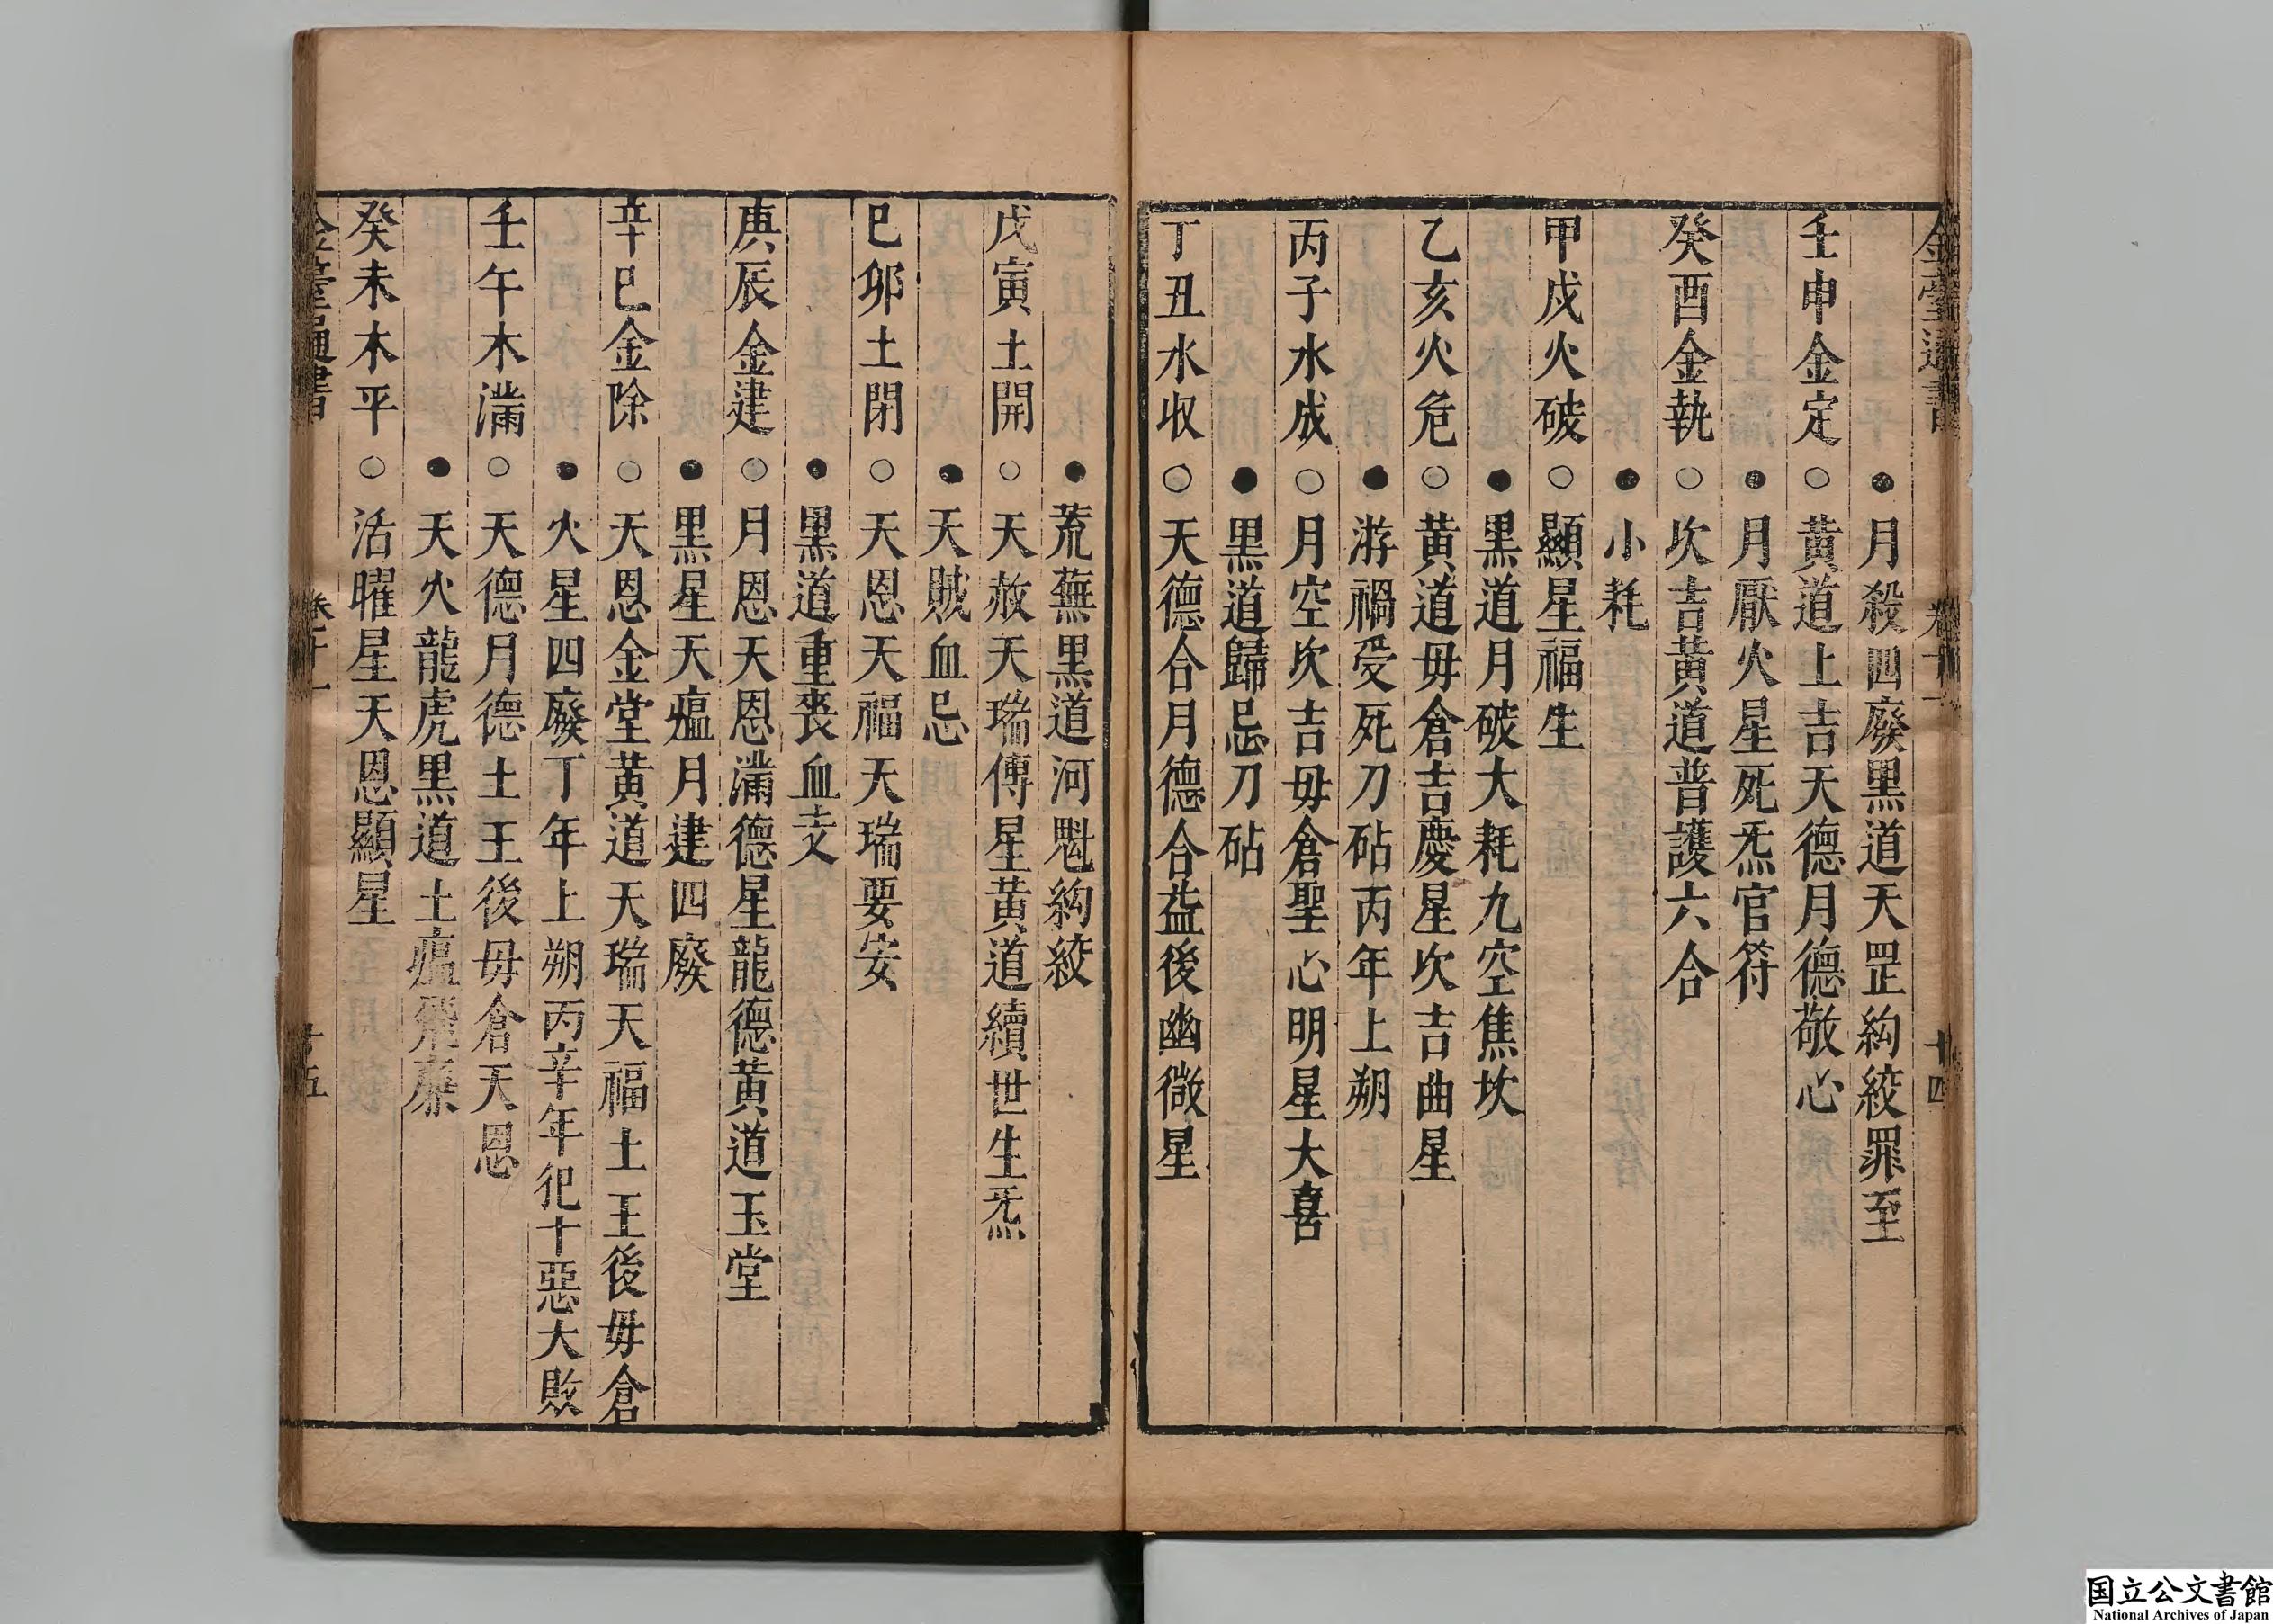 金臺通書　卷十一　十四
●月殺四廢黑道天罡絇絞罪至
壬申金定○黃道上吉天德月德敬心
●月厭火星死炁官符
癸酉金執○坎吉黃道普護六合
●小耗
甲戌火破○顯星福生
●黑道月破大耗九空焦坎
乙亥火危○黃道毋倉吉慶星坎吉曲星
●游禍受死刀砧丙年上朔
丙子水成○月空坎吉毋倉聖心明星大喜
●黑道歸忌刀砧
丁丑水收○天德合月德合益後幽微星
●荒蕪黑道河魁絇絞
戊寅土開○天赦天瑞傅星黃道續世生炁
●天賊血忌
巳卯土閉○天恩天福天瑞要安
●黑道重喪血支
庚辰金建○月恩天恩滿德星龍德黃道玉堂
●黑星天瘟月建四廢
辛巳金除○天恩金堂黃道天瑞天福土王後毋倉
●火星四廢丁年上朔丙辛年犯十惡大敗
壬午木滿○天德月德土王後毋倉天恩
●天火龍虎黑道土瘟飛廉
癸未木平○活曜星天恩顯星
金臺通書　卷十一　十五
国立公文書館
National Archives of Japan